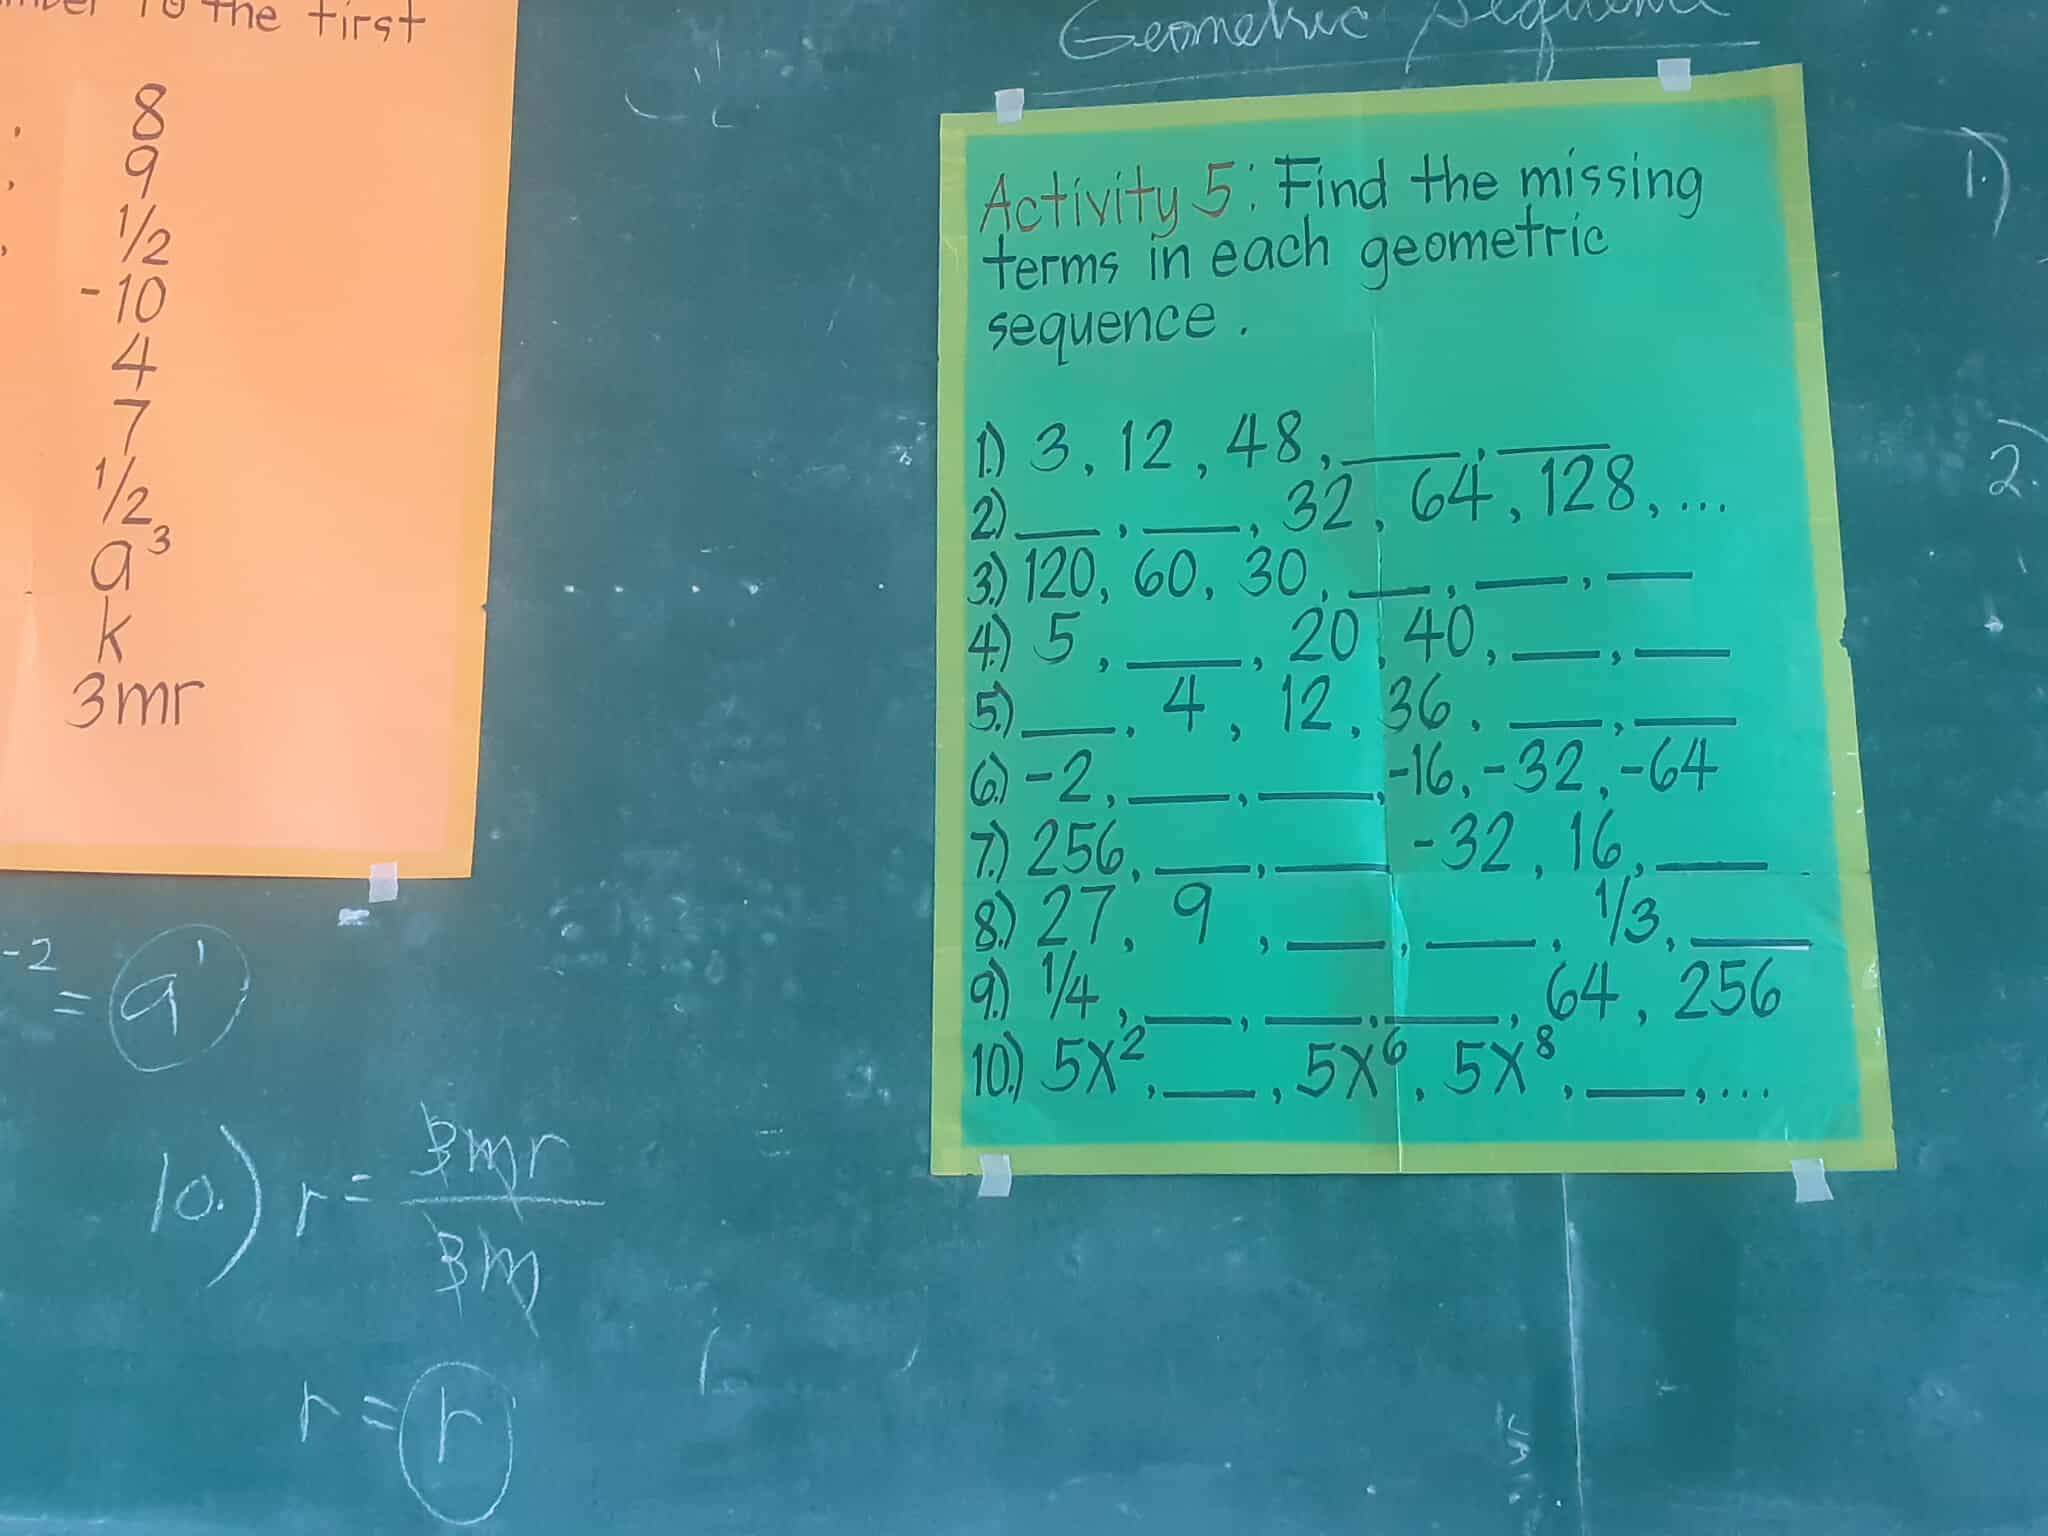 to the first
8
9
1/2
-10
4
7
1/2
a³
k
3mr
-2 = a¹
10.) r = 3mr
3m
r = r
Geometric Sequence
Activity 5: Find the missing
terms in each geometric
sequence.
1.) 3, 12, 48, ___, ___
2.) ___, ___, 32, 64, 128, ...
3.) 120, 60, 30, ___, ___, ___
4.) 5, ___, 20, 40, ___, ___
5.) ___, 4, 12, 36, ___, ___
6.) -2, ___, ___, -16, -32, -64
7.) 256, ___, ___ -32, 16, ___
8.) 27, 9, ___, ___, 1/3, ___
9.) 1/4, ___, ___, ___, 64, 256
10.) 5x², ___, 5x⁶, 5x⁸, ___, ...
1.)
2.